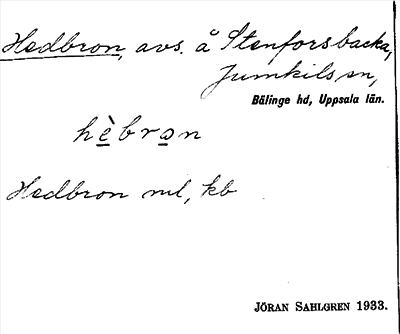 Hedbron, avs. å Stenforsbacka,
Jumkils sn,
Bälinge hd, Uppsala län.
hèbrən
Hedbron ml, kb
JÖRAN SAHLGREN 1933.